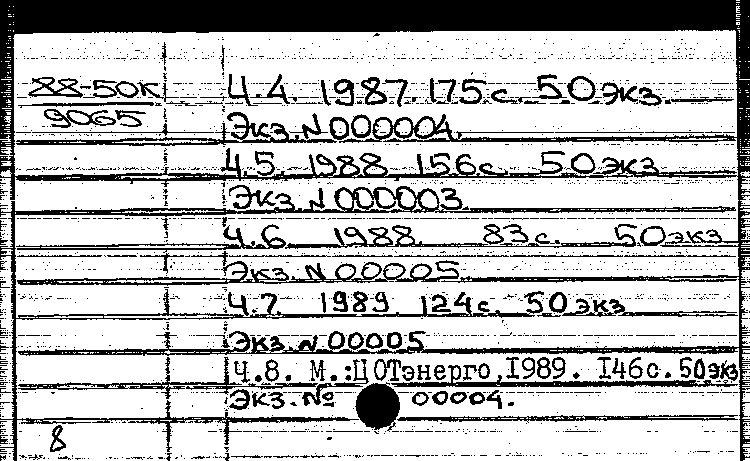 88-50К
9065
Ч.4. 1987. 175с. 50экз.
Экз.N000004.
Ч.5. 1988. 156с. 50экз
Экз.N000003
Ч.6 1988. 83с. 50экз
Экз.N00005
Ч.7. 1989. 124с. 50экз
Экз.N00005
Ч.8. М.:ЦОТэнерго,1989. 146с.50экз
Экз.№ 00004.
8